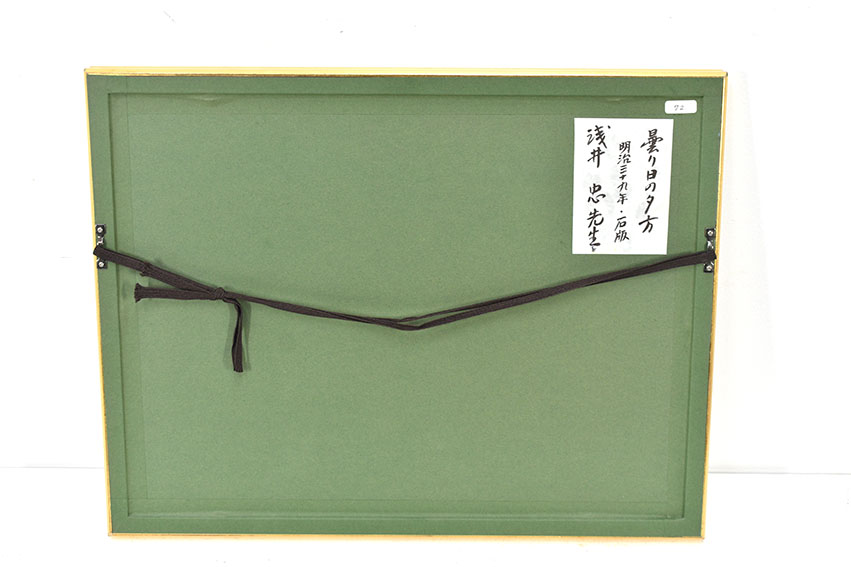 72
曇り日の夕方
明治三十九年・石版
浅井 忠先生